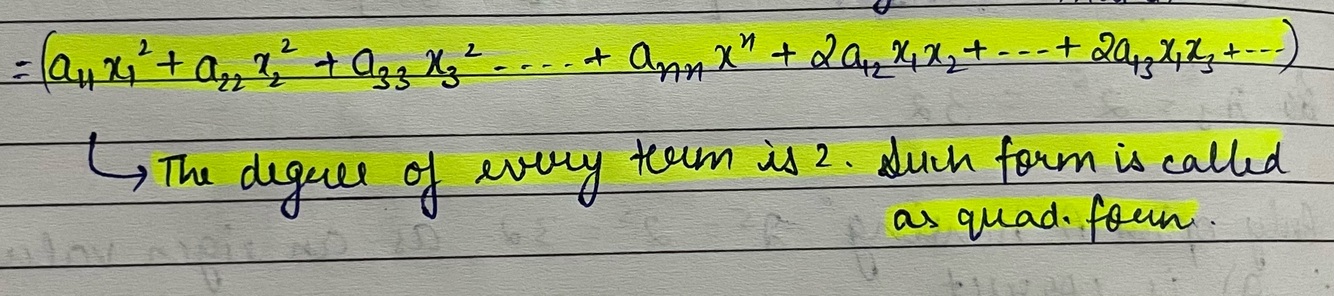 = (a₁₁ x₁² + a₂₂ x₂² + a₃₃ x₃² ..... + aₙₙ xⁿ + 2a₁₂ x₁x₂ + --- + 2a₁₃ x₁x₃ + ---)
↳ The degree of every term is 2. Such form is called
as quad. form.